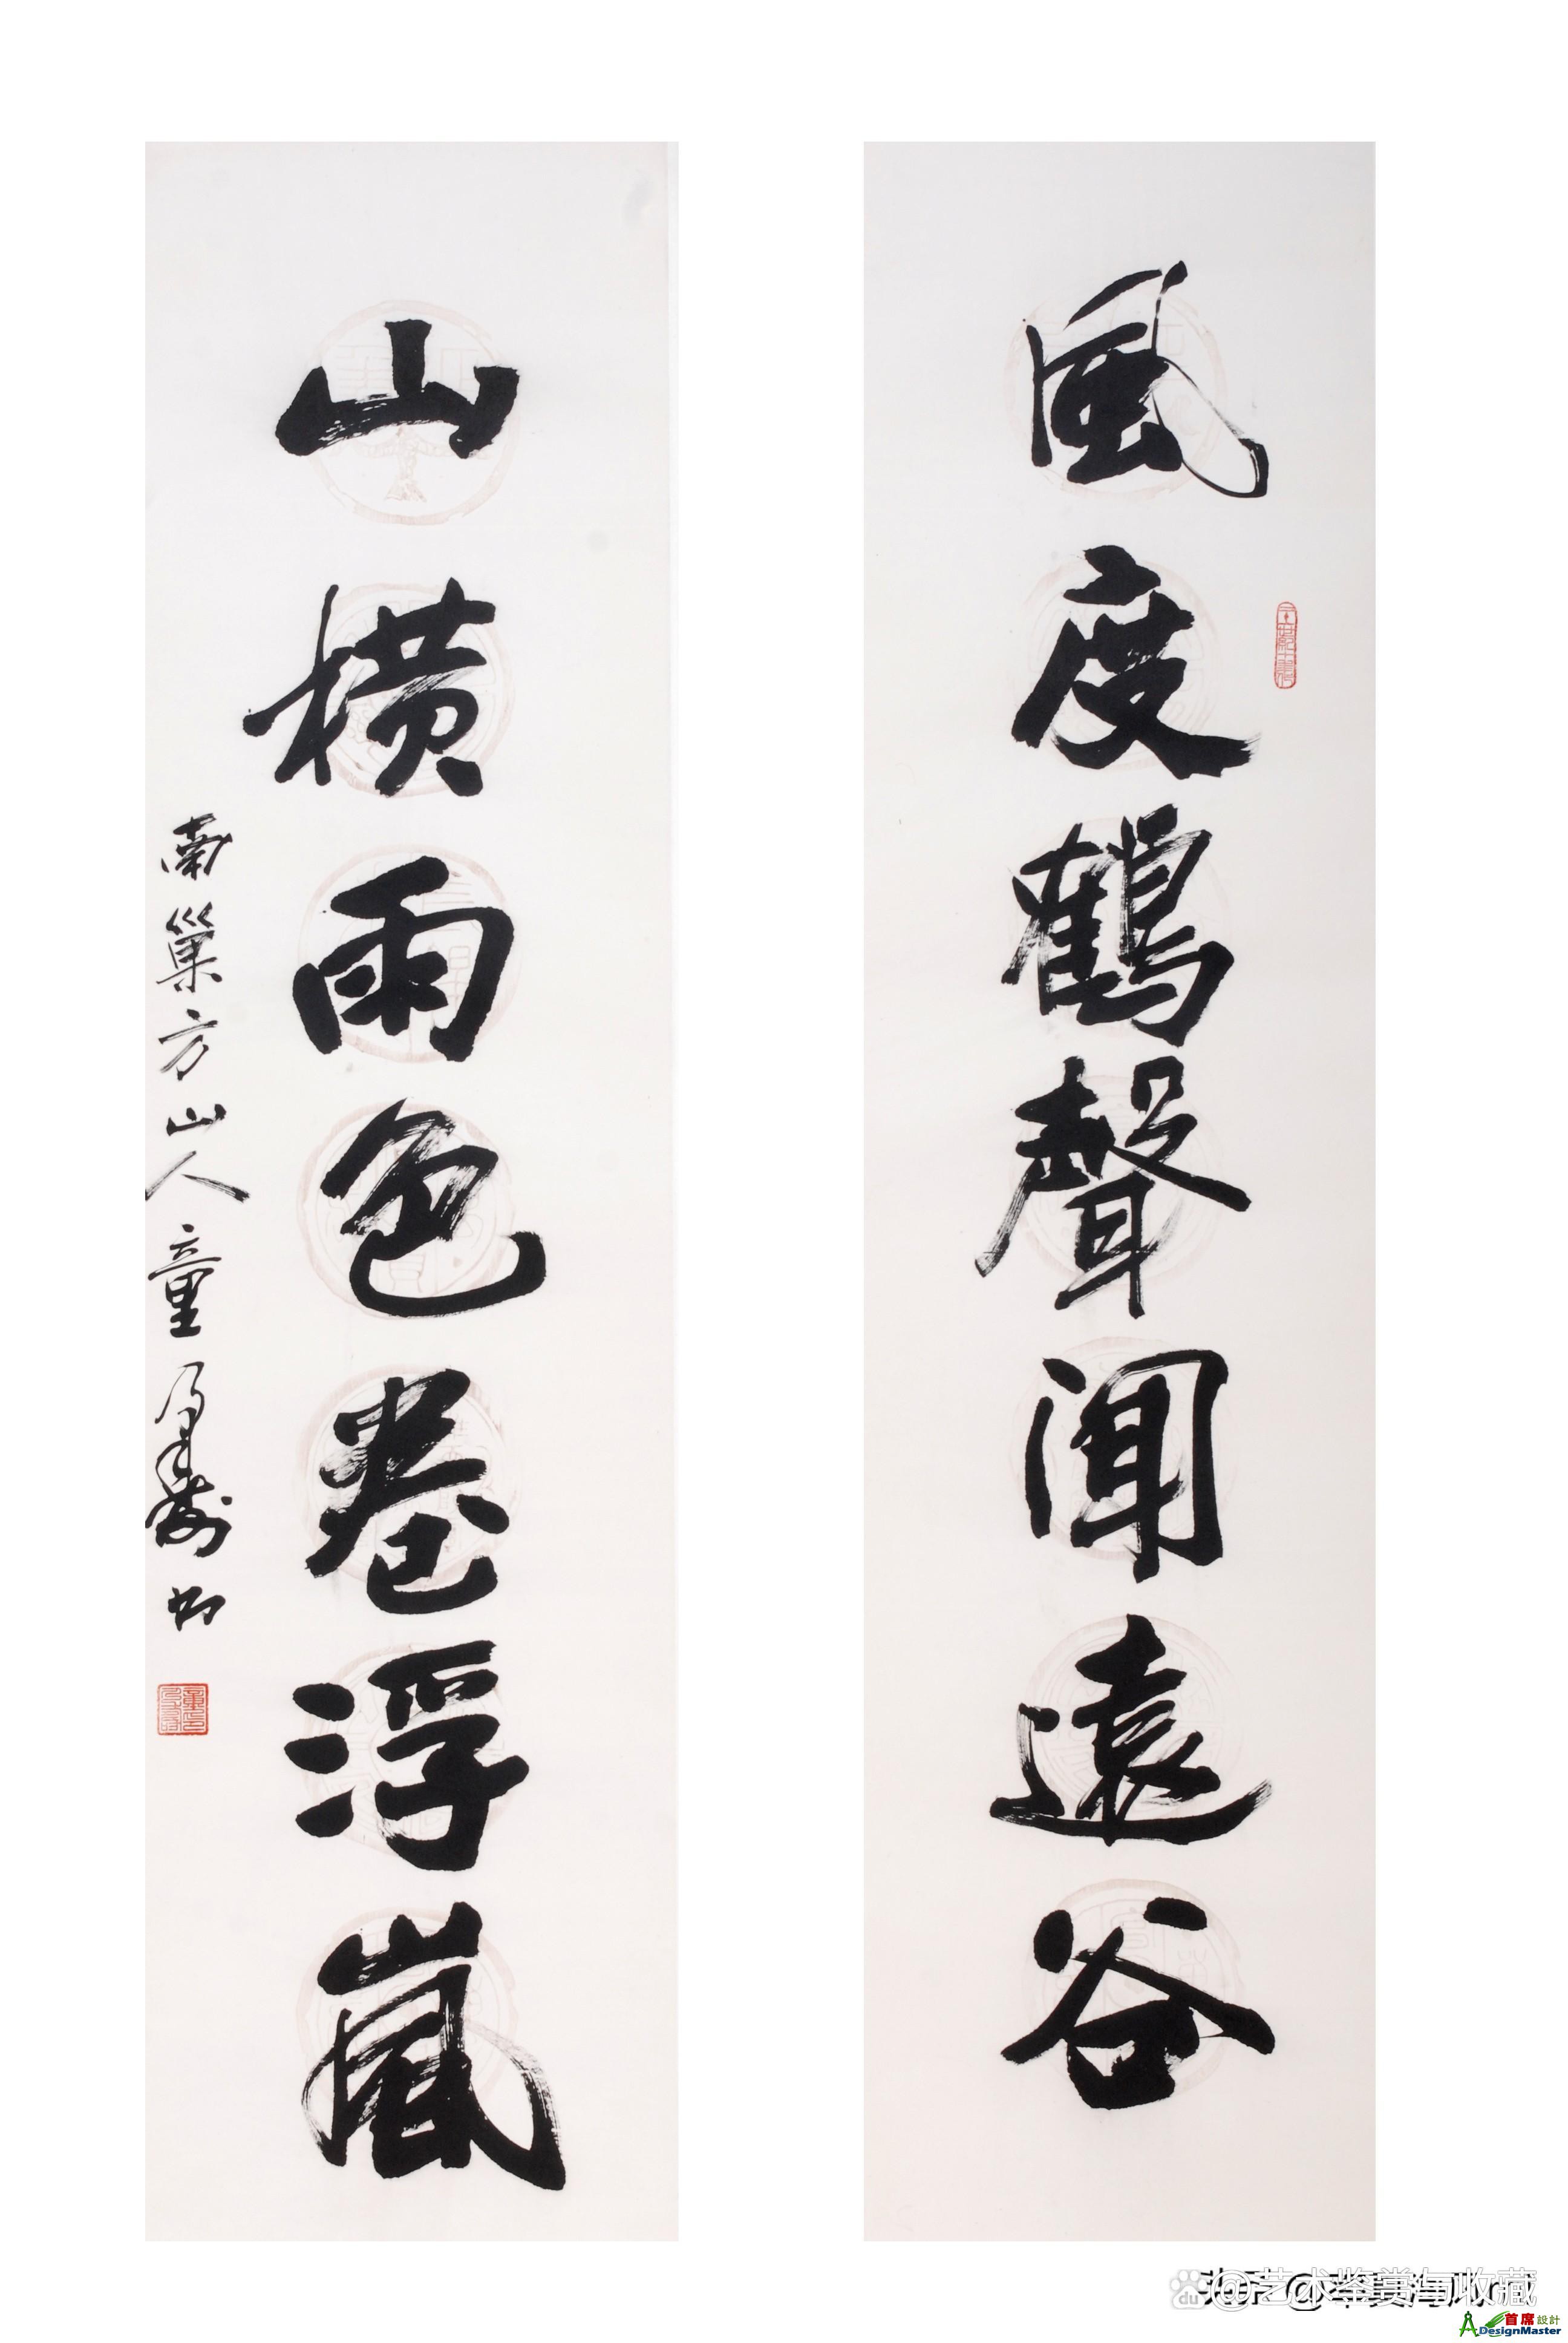 風度鶴聲聞遠谷
山橫雨色卷浮嵐
南巢方山人童乃壽書
du
@艺术鉴赏与收藏
首席設計
ADesignMaster